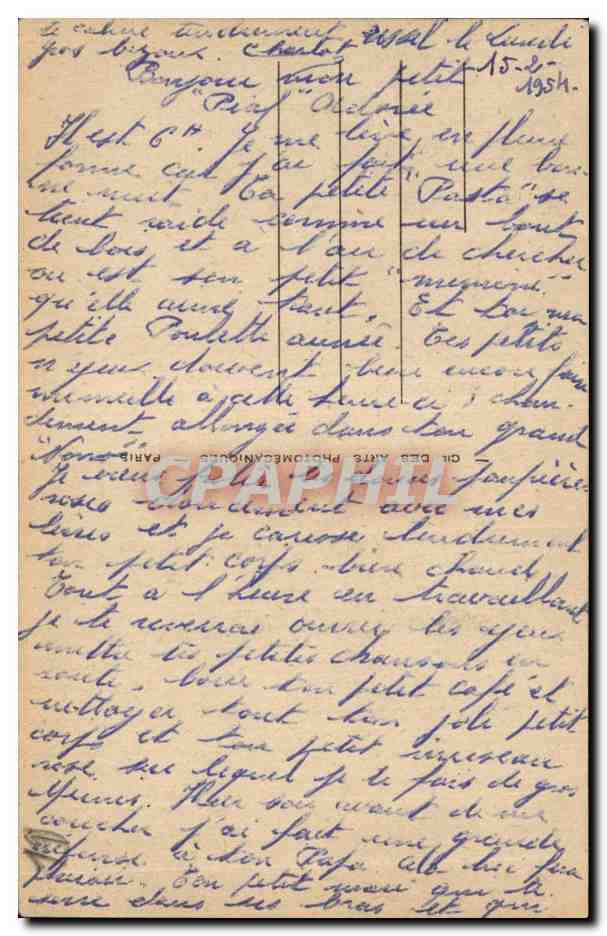 te caline tendrement Ussel le Lundi
gros bizoux. Charlot 15-2-
1954.
Bonjour mon petit
"Piaf" Adorée
Il est 6H. Je me lève en pleine
forme car j'ai fait une bon-
ne nuit. Ta petite se
tient raide comme un bout
de bois et a l'air de chercher
ou est son petit
qu'elle aime tant. Et toi ma
petite Poulette aussi. Tes petits
n'yeux doivent bien encore faire
à cette heure ci chau-
dement allongée dans ton grand
"Nono"
CIE DES ARTS PHOTOMÉCANIQUES PARIS
CPAPHIL
Je tes paupières
roses avec mes
lèvres et je caresse tendrement
ton petit corps bien chaud
Tout à l'heure en travaillant
je te reverrai ouvrir les yeux
mettre tes petites chansons en
route, boire ton petit café et
nettoyer tout ton joli petit
corps et ton petit museau
rose sur lequel je te fais de gros
Hier soir avant de me
coucher j'ai fait une grande
à ton Papa
Ton petit mari qui te
serre dans ses bras et qui